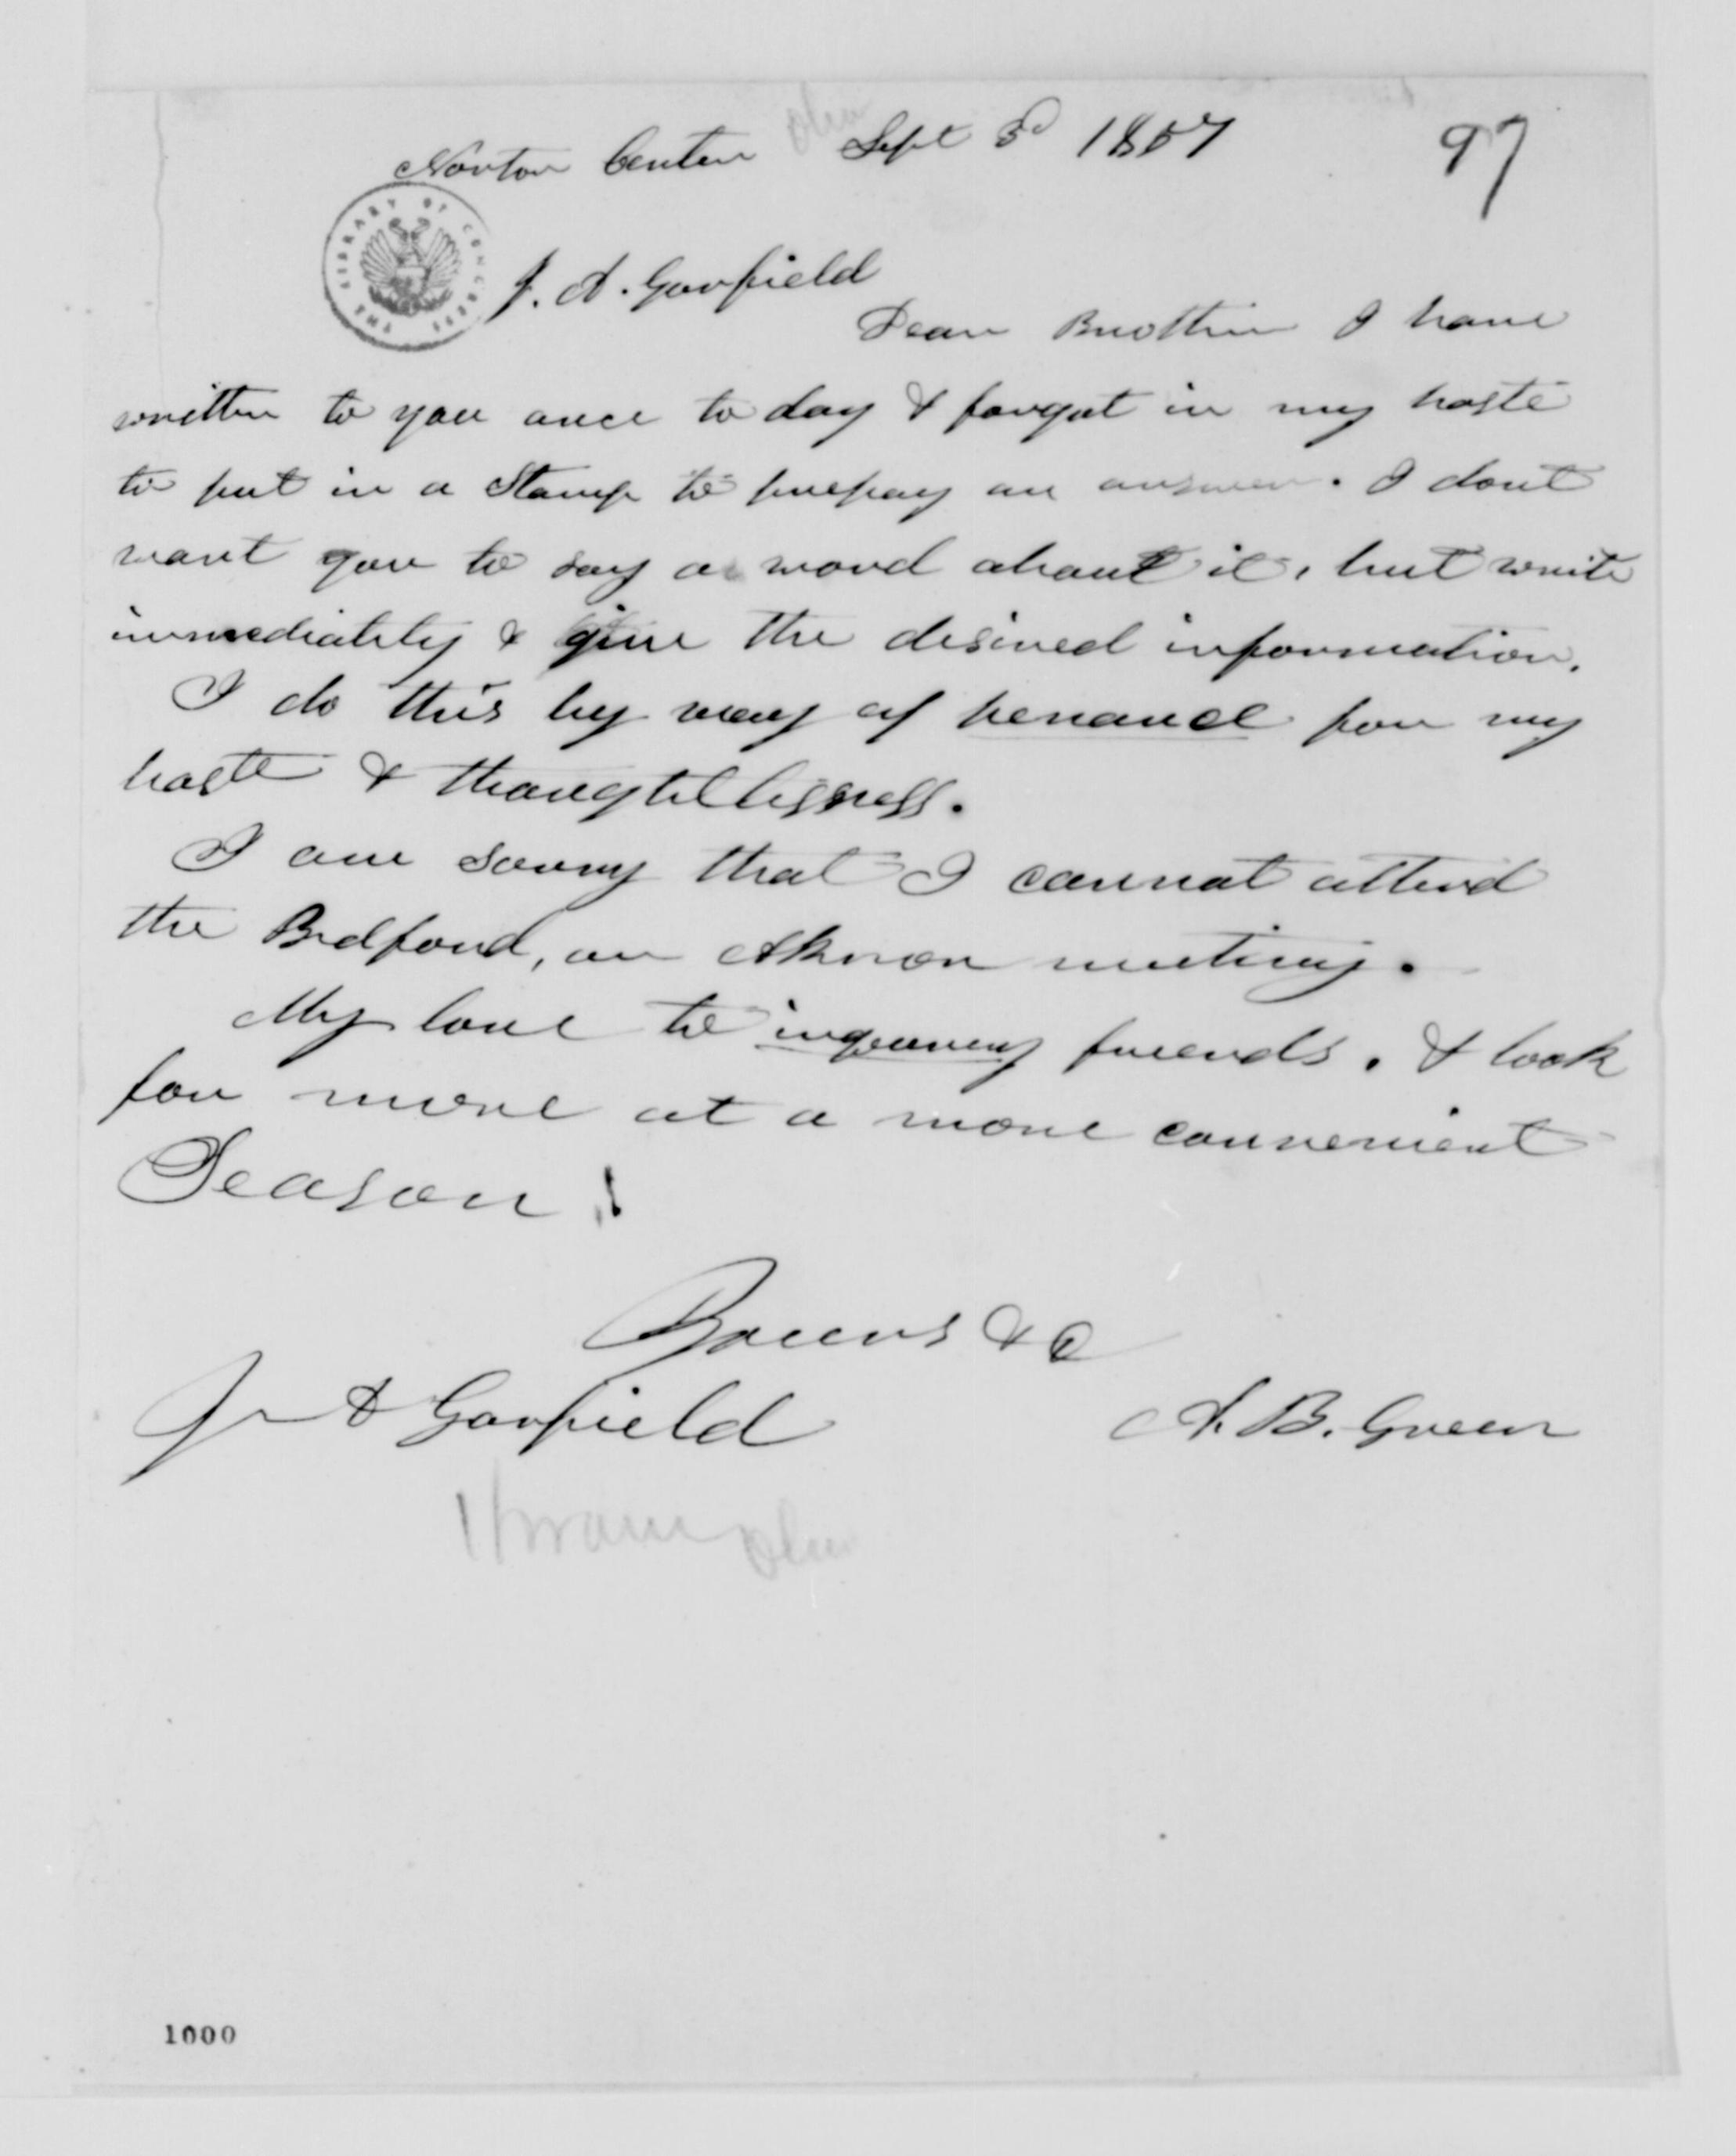 Norton Center Sept 3d 1857
97
THE LIBRARY OF CONGRESS
J. A. Garfield
Dear Brother I have
written to you once to day & forgot in my haste
to put in a Stamp to prepay an answer. I dont
want you to say a word about it, but write
immediately & give the desired information.
I do this by way of penance for my
haste & thougtlessness.
I am sorry that I cannot attend
the Bedford, or Akron meeting.
My love to inquiring friends. & look
for more at a more convenient
Season!
&c
J A Garfield
A. B. Green
Hiram
1000